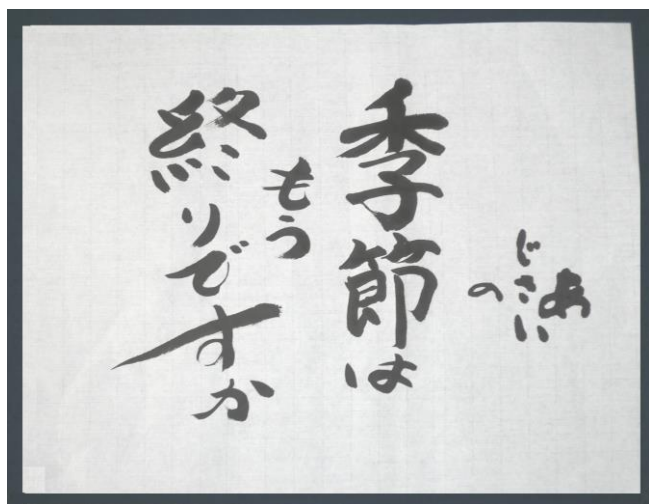 あ
じさい
の
季節は
もう
終りですか